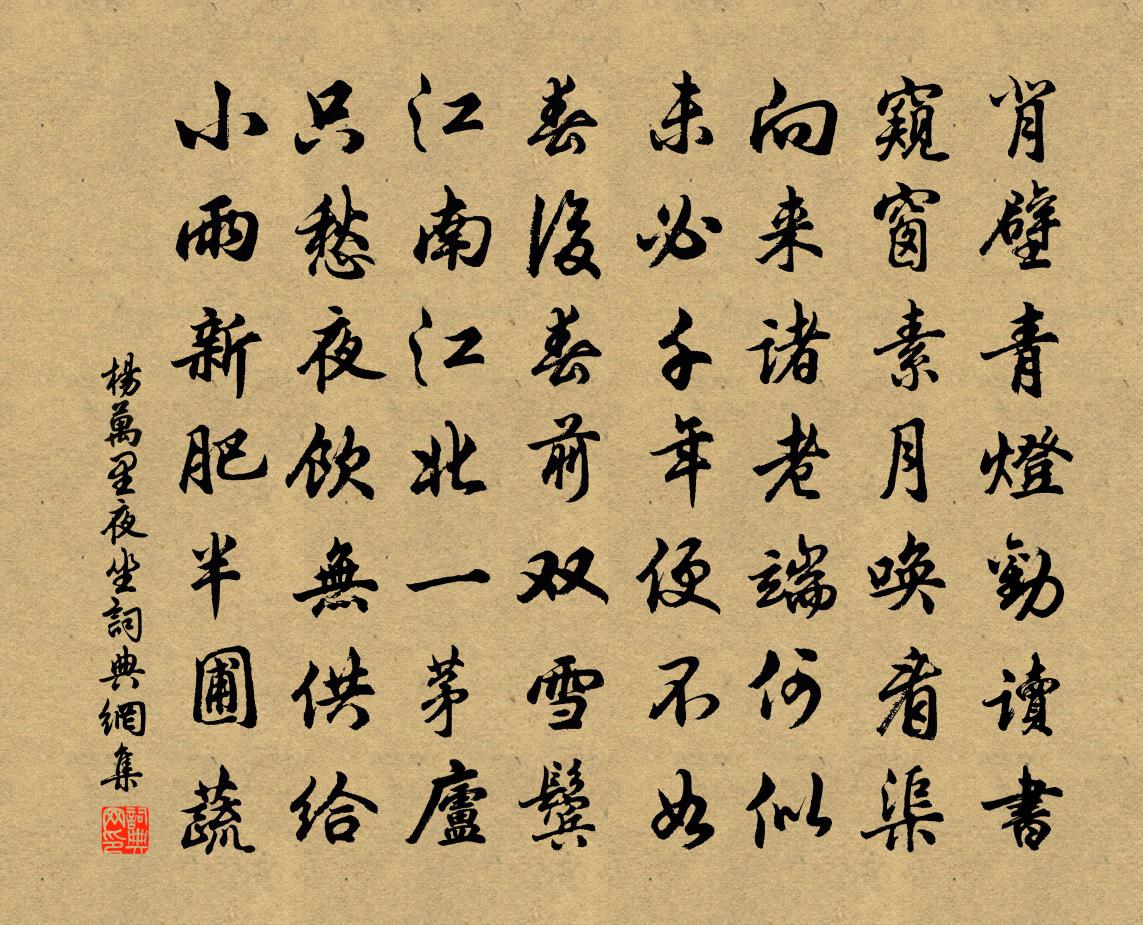 背壁青燈勸讀書
窺窗素月喚看渠
向来諸老端何似
未必千年便不如
春後春前双雪鬢
江南江北一茅廬
只愁夜飲無供給
小雨新肥半圃蔬
楊萬里夜坐詞典網集
詞典网印